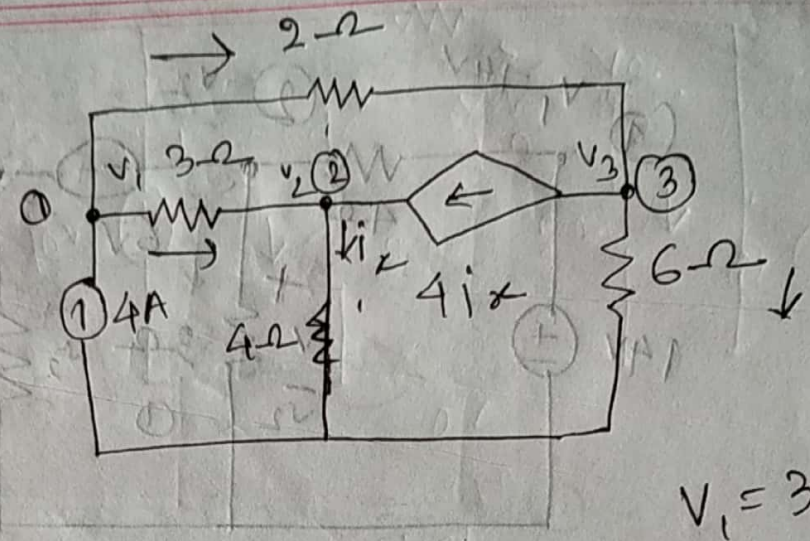 2Ω
V₁ 3Ω V₂ ② V₃ ③
①
iₓ
4iₓ
6Ω
4A
4Ω
V₁ = 3